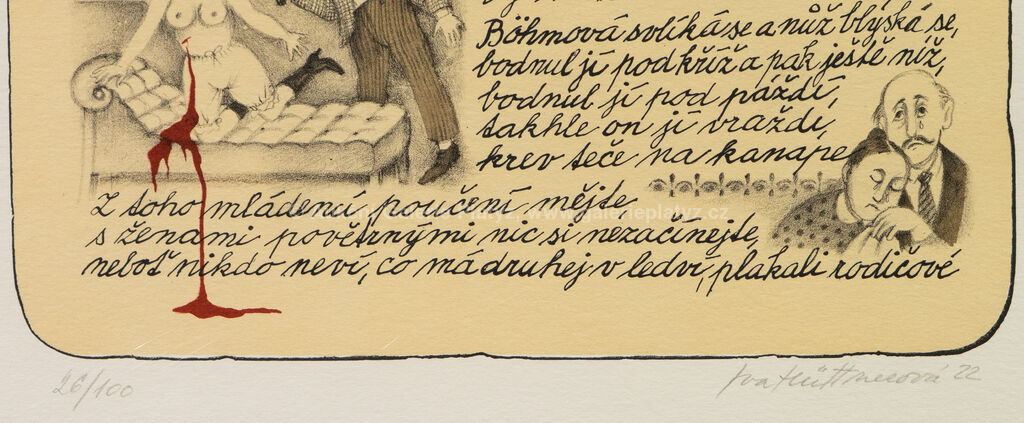 Böhmová svlíká se a nůž blýská se,
bodnul jí pod kříž a pak ještě níž,
bodnul jí pod páždí,
takhle on jí vraždí,
krev teče na kanape
Z toho mládenci poučení mějte
s ženami povětrnými nic si nezačínejte,
neboť nikdo neví, co má druhej v ledví, plakali rodičové
www.galerieplatyz.cz
26/100
Iva Hüttnerová 22